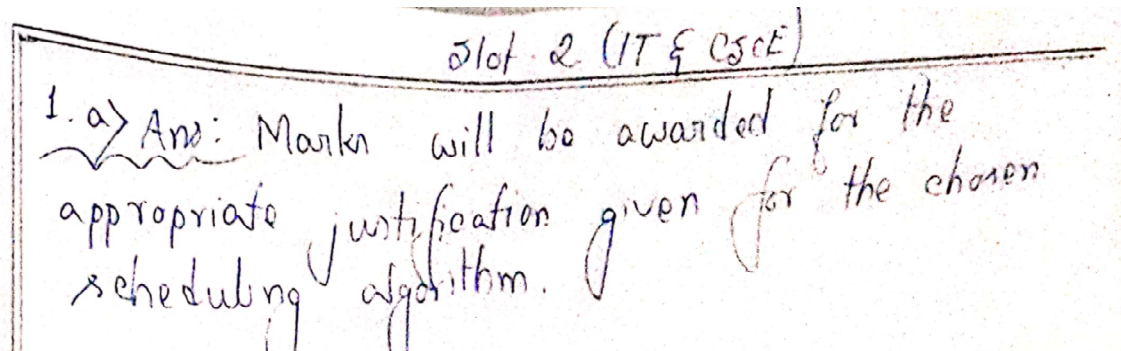 Slot-2 (IT & CSCE)
1. a) Ans: Marks will be awarded for the
appropriate justification given for the chosen
scheduling algorithm.